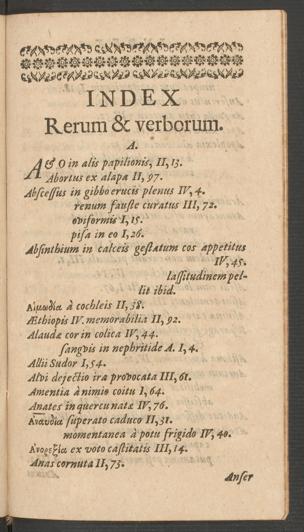 INDEX
Rerum & verborum.
A.
A & O in alis papilionis, II, 13.
Abortus ex alapa II, 97.
Abscessus in gibbo erucis plenus IV, 4.
renum fauste curatus III, 72.
oviformis I, 15.
pisa in eo I, 26.
Absinthium in calceis gestatum cos appetitus
IV, 45.
lassitudinem pel-
lit ibid.
Αἱμωδία à cochleis II, 38.
Æthiopis IV. memorabilia II, 92.
Alaudæ cor in colica IV, 44.
sangvis in nephritide A. I, 4.
Allii Sudor I, 54.
Alvi dejectio ira provocata III, 61.
Amentia à nimio coitu I, 64.
Anates in quercu natæ IV, 76.
Αναυδία superato caduco II, 31.
momentanea à potu frigido IV, 40.
Ανορεξία ex voto castitatis III, 14.
Anas cornuta II, 73.
Anser